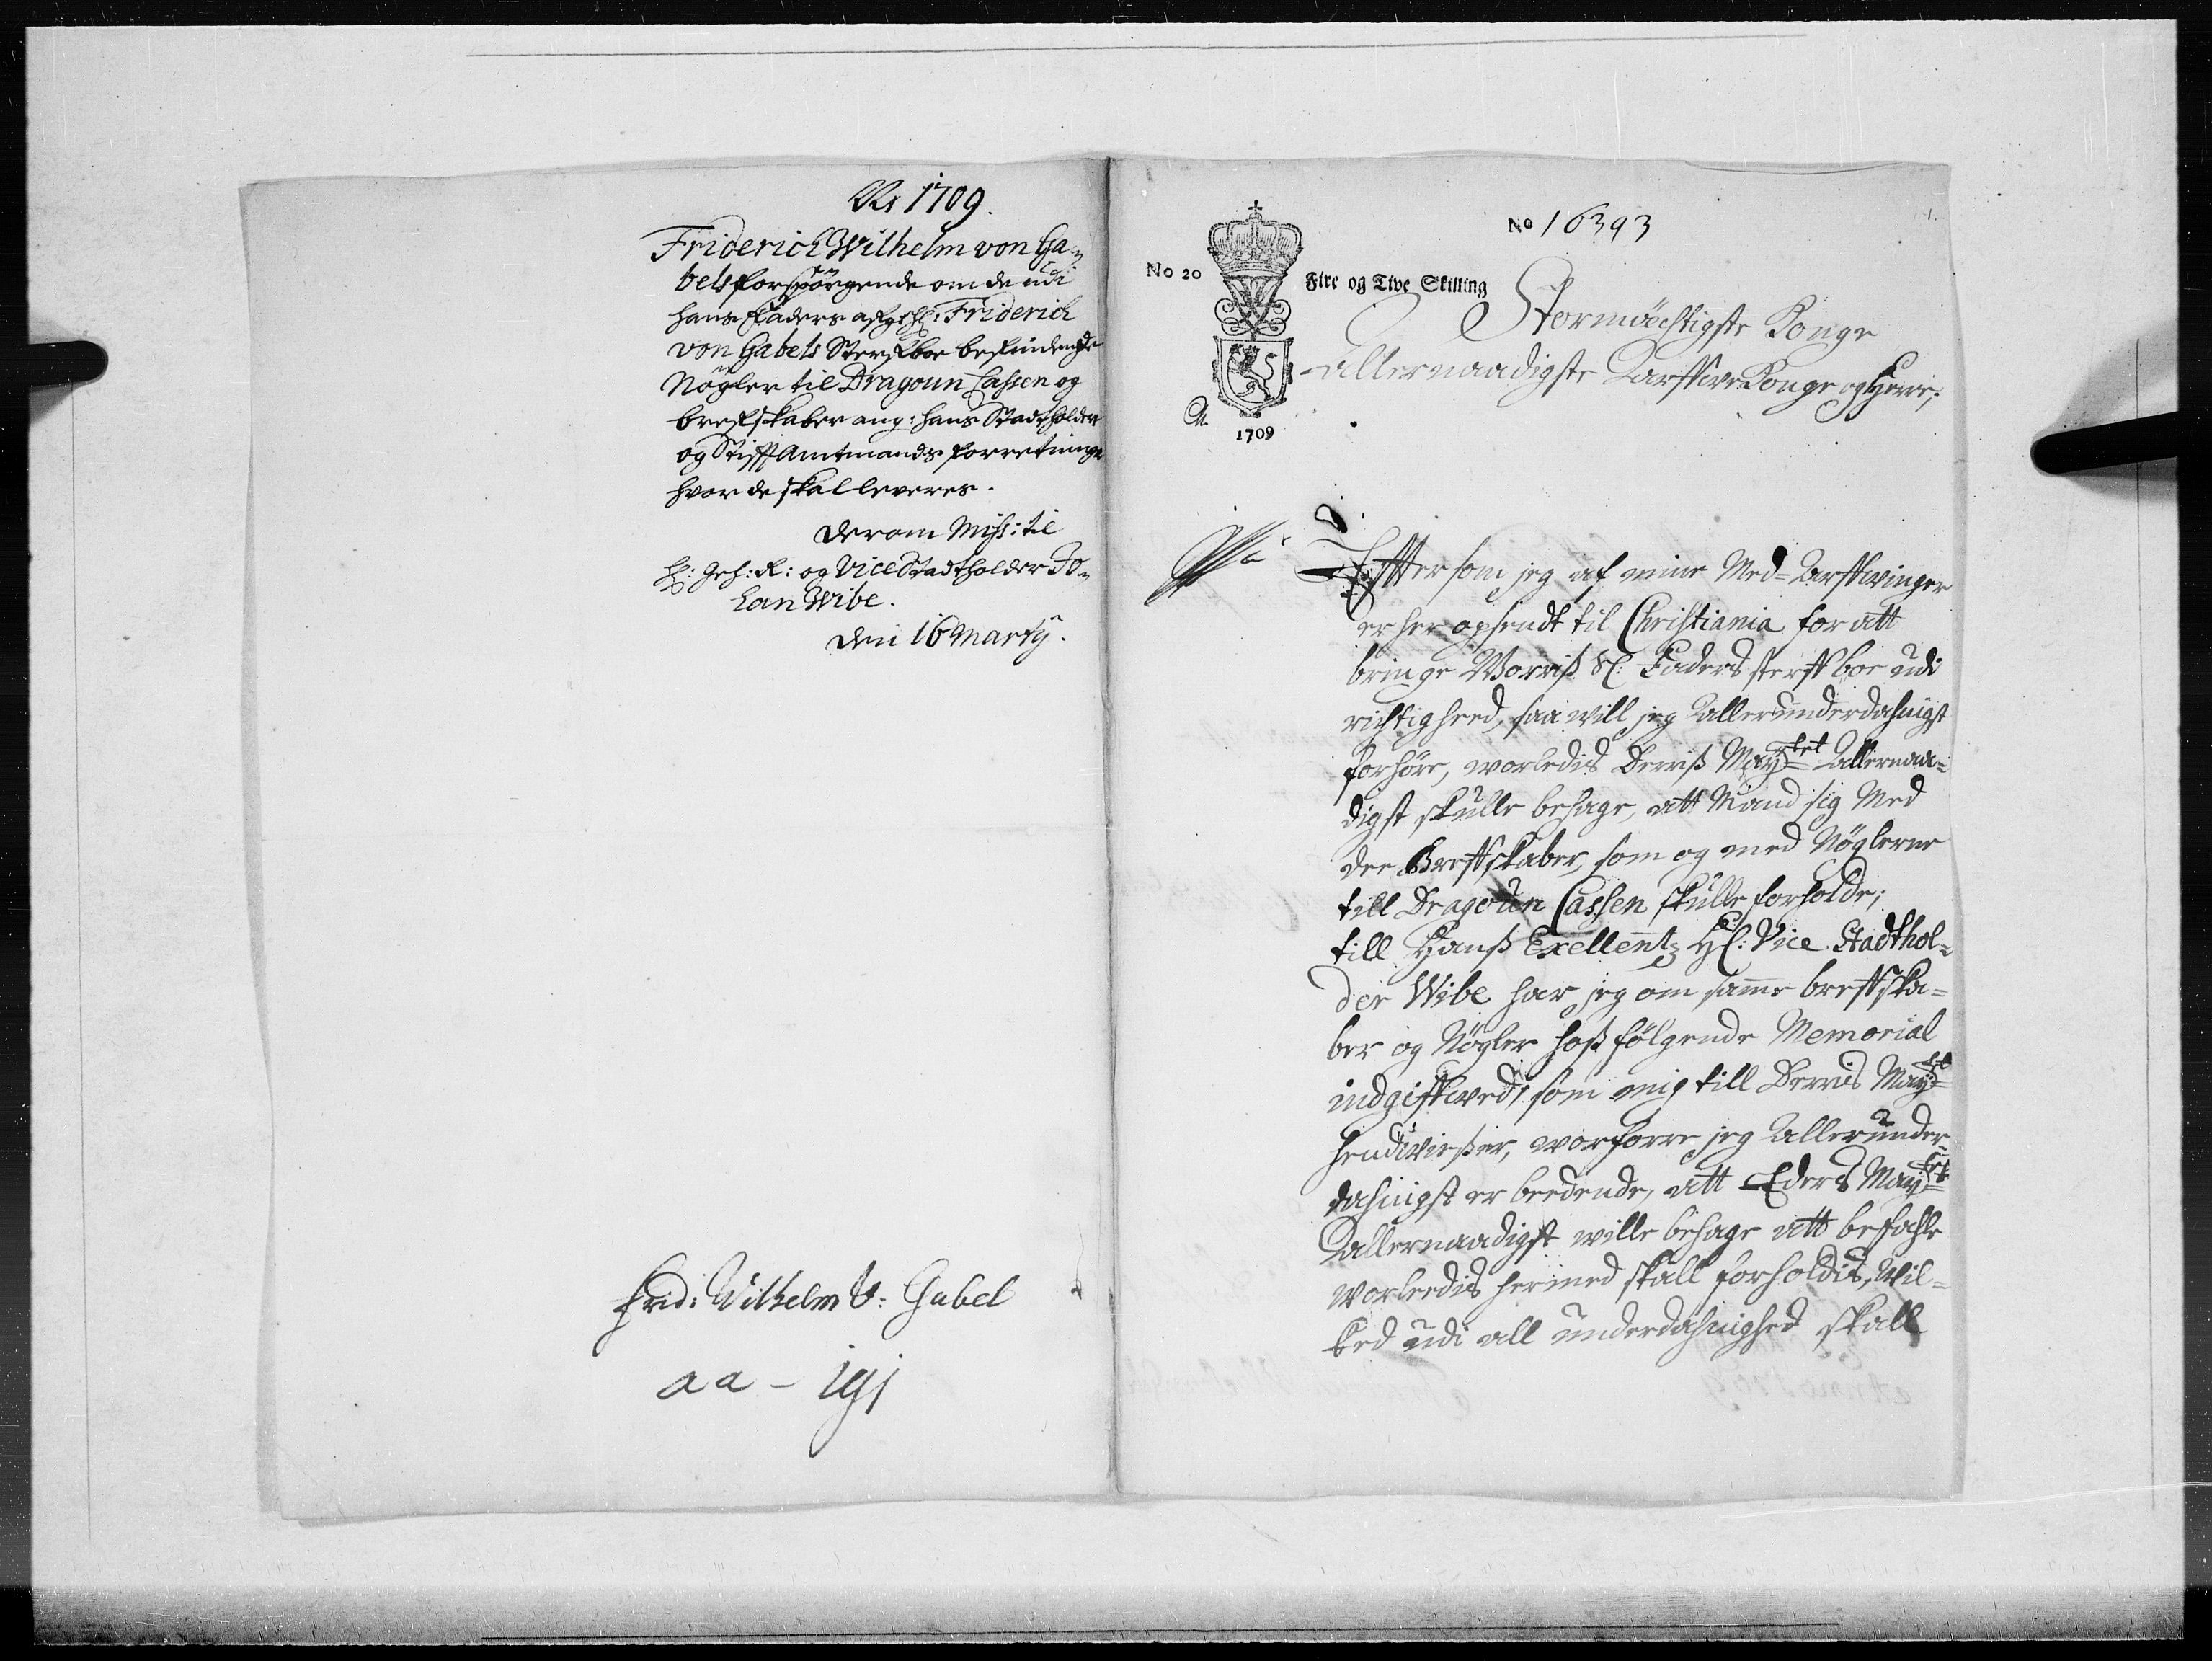 1709.
Friderich Wilhelm von Ga-
bels forspørgende om de udi
hans Faders afgl: Hr: Friderich
von Gabels Sterfboe befindende
Nøgler til Dragoun Cassen og
brefskaber ang: hans Stadtholder
og Stiftamtmands forretninge
hvor de skal leveres.
Derom Miss: til
H: Geh: R: og Vice Stadtholder Jo-
han Wibe.
Den 16 Marty.
Frid: Wilhelm V: Gabel
aa - 191
No 16393
No 20
Fire og Tive Skilling
1709
Stormächtigste Konge
Allernaadigste Larffwe Konge og Herre;
Effttersom jeg af mine Med-Larffwinger
er her opsendt til Christiania for att
bringe Worriß Sl: Faders sterffboe udi
richtigheed, saa will jeg Allerunderdahnigst
forhöre, worledis Derriß Maytet Allernaa-
digst skulle behage, att Mand sig Med
dee Breffskaber, som og med Nöglerne
till Dragoun Cassen skulle forholde;
till Hanß Exellentz H: Vice Stadthol-
der Wibe har jeg om samme breffska-
ber og Nögler hoß fölgende Memorial
indgiffwed, som mig till Derris Maytt
henwießer, worforre jeg Allerunder-
dahnigst er beedende, att Eders Maytet
Allernaadigst wille behage att befahle
worledis hermed skall forholdis, wil-
ked udi all underdahnighed skall